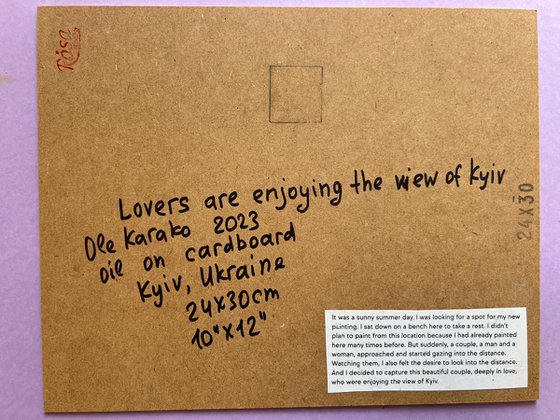 Rosa
Lovers are enjoying the view of Kyiv
Ole Karako 2023
oil on cardboard
Kyiv, Ukraine
24x30cm
10"x12"
24X30
It was a sunny summer day. I was looking for a spot for my new
painting. I sat down on a bench here to take a rest. I didn't
plan to paint from this location because I had already painted
here many times before. But suddenly, a couple, a man and a
woman, approached and started gazing into the distance.
Watching them, I also felt the desire to look into the distance.
And I decided to capture this beautiful couple, deeply in love,
who were enjoying the view of Kyiv.